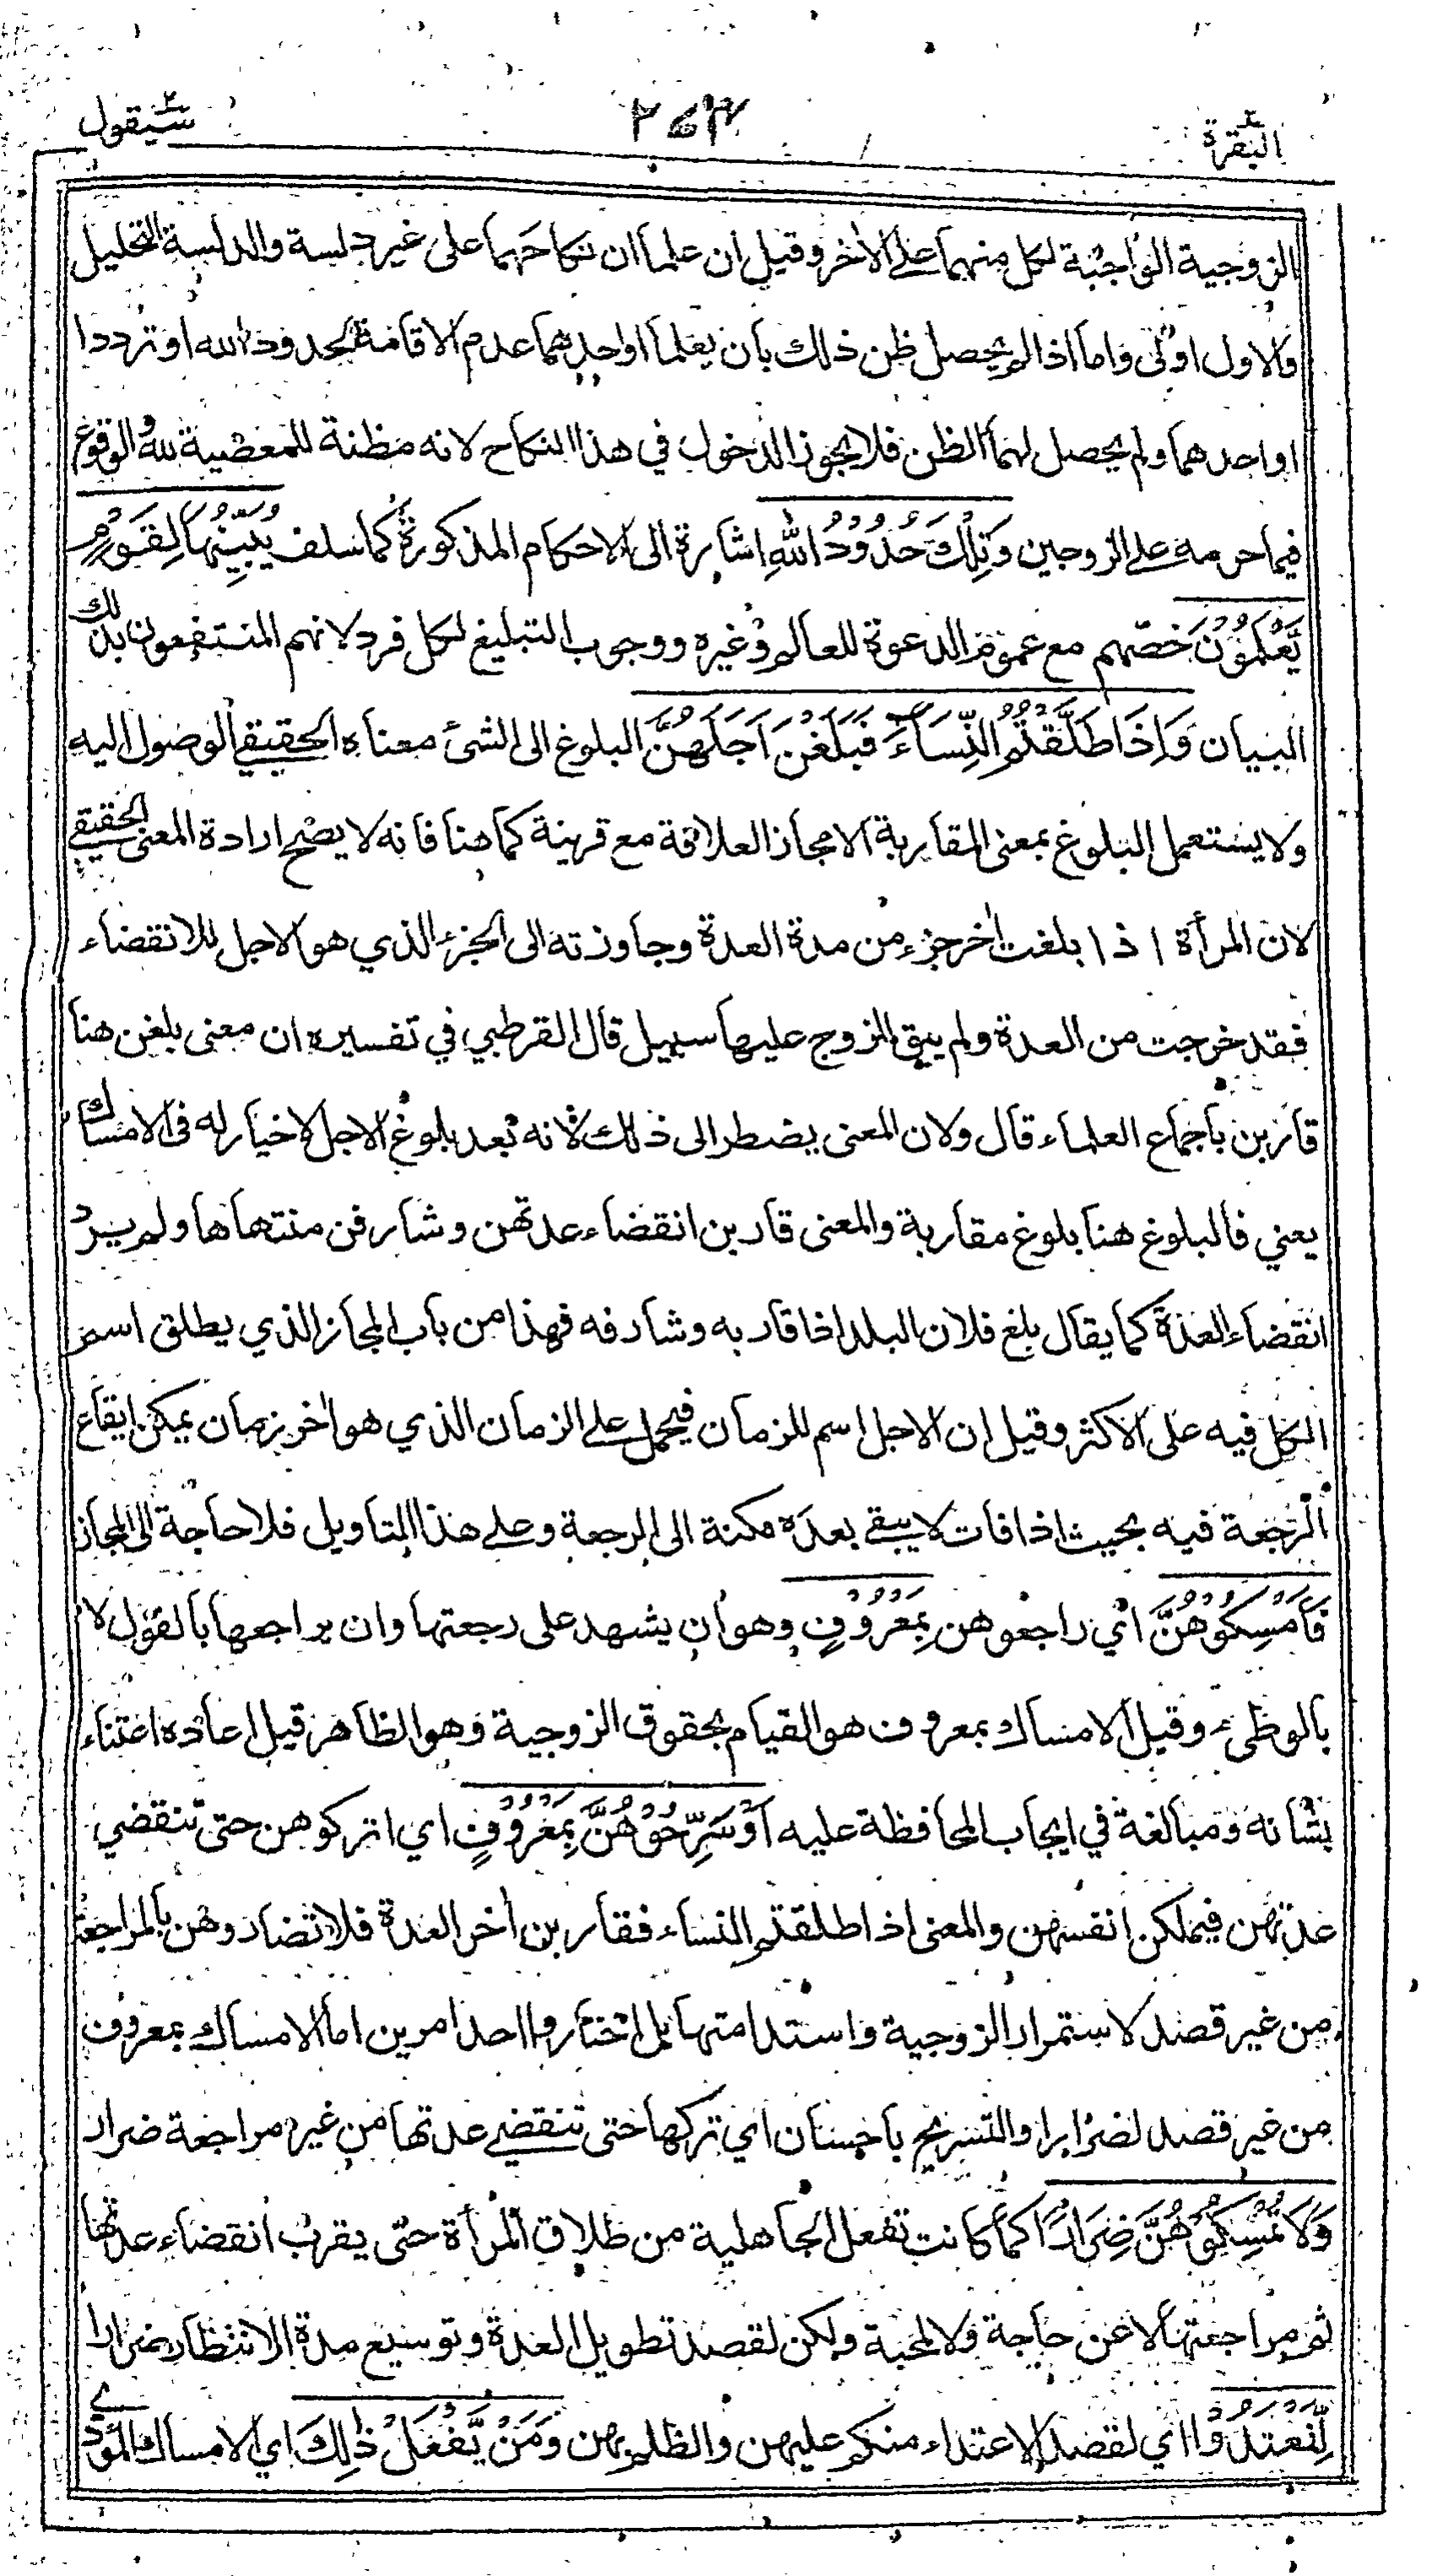 البقرة ٢
٢٤٣
سيقول ٢
الزوجية الواجبة لكل منهما على الاٰخر وقيل ان علما ان نكاحهما على غير دلسة والدلسة التحليل
والاول اولى واما اذا لم يحصل ظن ذلك بان يعلما او احدهما عدم الاقامة لحدود الله او ترددا
او احدهما ولم يحصل لهما الظن فلا يجوز الدخول في هذا النكاح لانه مظنة للمعصية لله والوقوع
فيما حرمه على الزوجين وَتِلْكَ حُدُوْدُ اللهِ اشارة الى الاحكام المذكورة كما سلف يُبَيِّنُهَا لِقَوْمٍ
يَّعْلَمُوْنَ خصّهم مع عموم الدعوة للعالم وغيره ووجوب التبليغ لكل فرد لانهم المنتفعون بذلك
البيان وَاِذَا طَلَّقْتُمُ النِّسَآءَ فَبَلَغْنَ اَجَلَهُنَّ البلوغ الى الشئ معناه الحقيقي الوصول اليه
ولا يستعمل البلوغ بمعنى المقاربة الا مجاز العلاقة مع قرينة كما هنا فانه لا يصح ارادة المعنى الحقيقي
لان المرأة اذا بلغت اٰخر جزء من مدة العدة وجاوزته الى الجزء الذي هو الاجل للانقضاء
فقد خرجت من العدة ولم يبق للزوج عليها سبيل قال القرطبي في تفسيره ان معنى بلغن هنا
قاربن باجماع العلماء قال ولان المعنى يضطر الى ذلك لانه بعد بلوغ الاجل لا خيار له في الامساك
يعني فالبلوغ هنا بلوغ مقاربة والمعنى قاربن انقضاء عدتهن وشارفن منتهاها ولم يرد
انقضاء العدة كما يقال بلغ فلان البلد اذا قاربه وشارفه فهذا من باب المجاز الذي يطلق اسم
الكل فيه على الاكثر وقيل ان الاجل اسم للزمان فيحمل على الزمان الذي هو اٰخر زمان يمكن ايقاع
الرجعة فيه بحيث اذا فات لا يبقى بعده مكنة الى الرجعة وعلى هذا التاويل فلا حاجة الى المجاز
فَاَمْسِكُوْهُنَّ اي راجعوهن بِمَعْرُوْفٍ وهو ان يشهد على رجعتها وان يراجعها بالقول لا
بالوطىء وقيل الامساك بمعروف هو القيام بحقوق الزوجية وهو الظاهر قيل اعاده اعتناء
بشانه ومبالغة في ايجاب المحافظة عليه اَوْ سَرِّحُوْهُنَّ بِمَعْرُوْفٍ اي اتركوهن حتى تنقضي
عدتهن فيملكن انفسهن والمعنى اذا طلقتم النساء فقاربن اٰخر العدة فلا تضاروهن بالمراجعة
من غير قصد لاستمرار الزوجية واستدامتها بل اختاروا احد امرين اما الامساك بمعروف
من غير قصد لضرار او التسريح باحسان اي تركها حتى تنقضي عدتها من غير مراجعة ضرار
وَلَا تُمْسِكُوْهُنَّ ضِرَارًا كما كانت تفعل الجاهلية من طلاق المرأة حتى يقرب انقضاء عدتها
ثم مراجعتها لا عن حاجة ولا لمحبة ولكن لقصد تطويل العدة وتوسيع مدة الانتظار ضرارا
لِّتَعْتَدُوْا اي لقصد الاعتداء منكم عليهن والظلم بهن وَمَنْ يَّفْعَلْ ذٰلِكَ اي الامساك المؤدي